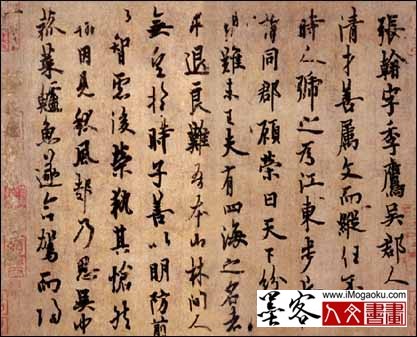 張翰字季鷹吳郡人
清才善屬文而縱任不
時人號之為江東步兵
謂同郡顧榮曰天下紛
難未已夫有四海之名者
求退良難吾本山林間人
無望於時子善以明防前
以智慮後榮執其愴然
翰因見秋風起乃思吳中
菰菜鱸魚遂命駕而歸
墨客
www.iMogaoku.com
人文書畫